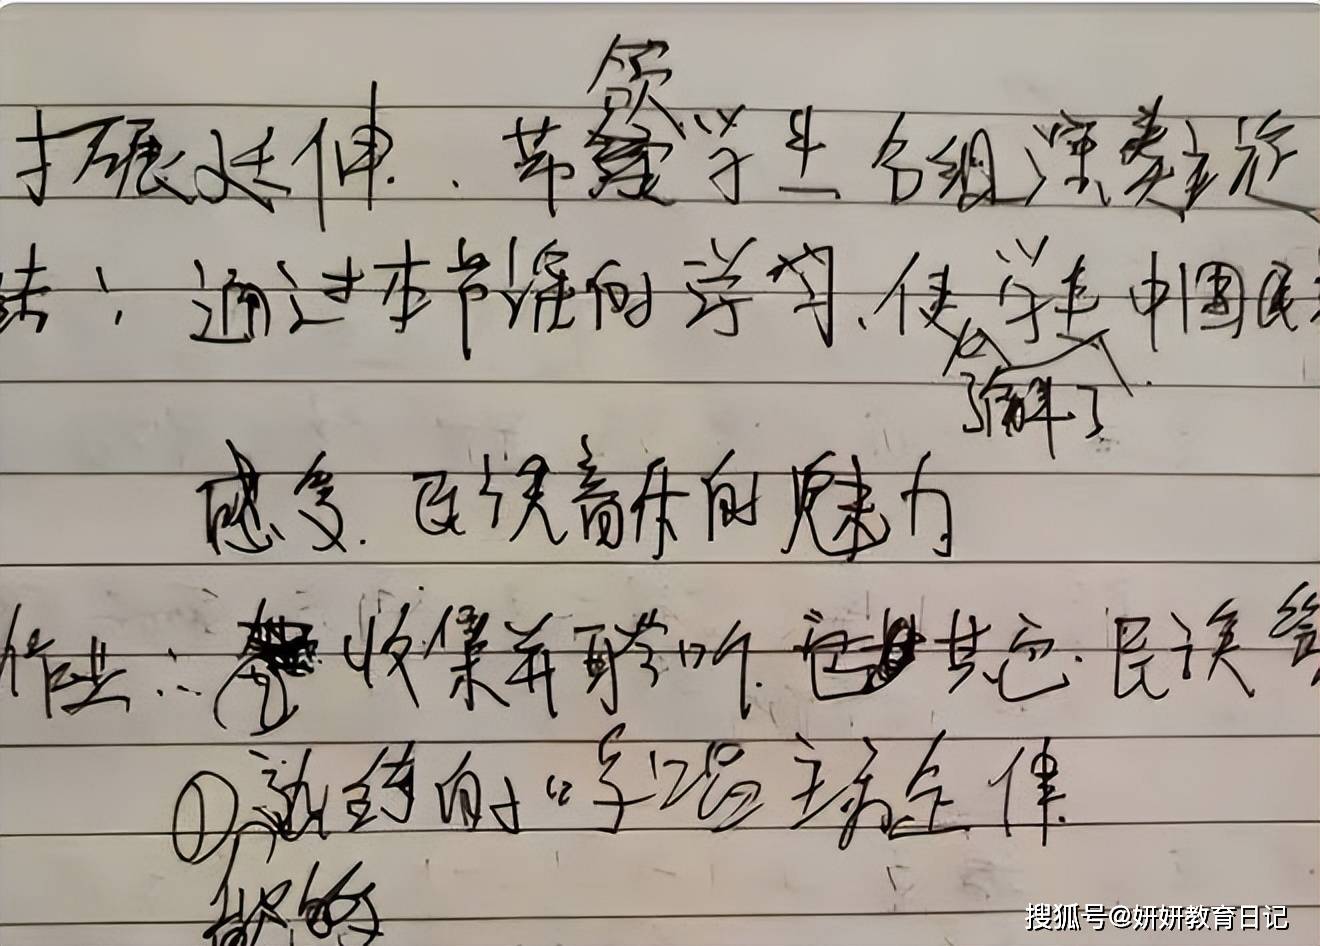 扩展延伸．带领学生分组演奏主旋
结：通过本节课的学习、使学生中国民
了解了
感受民族音乐的魅力
作业：② 收集并聆听其它民族
① 的哼唱主旋律
搜狐号@妍妍教育日记